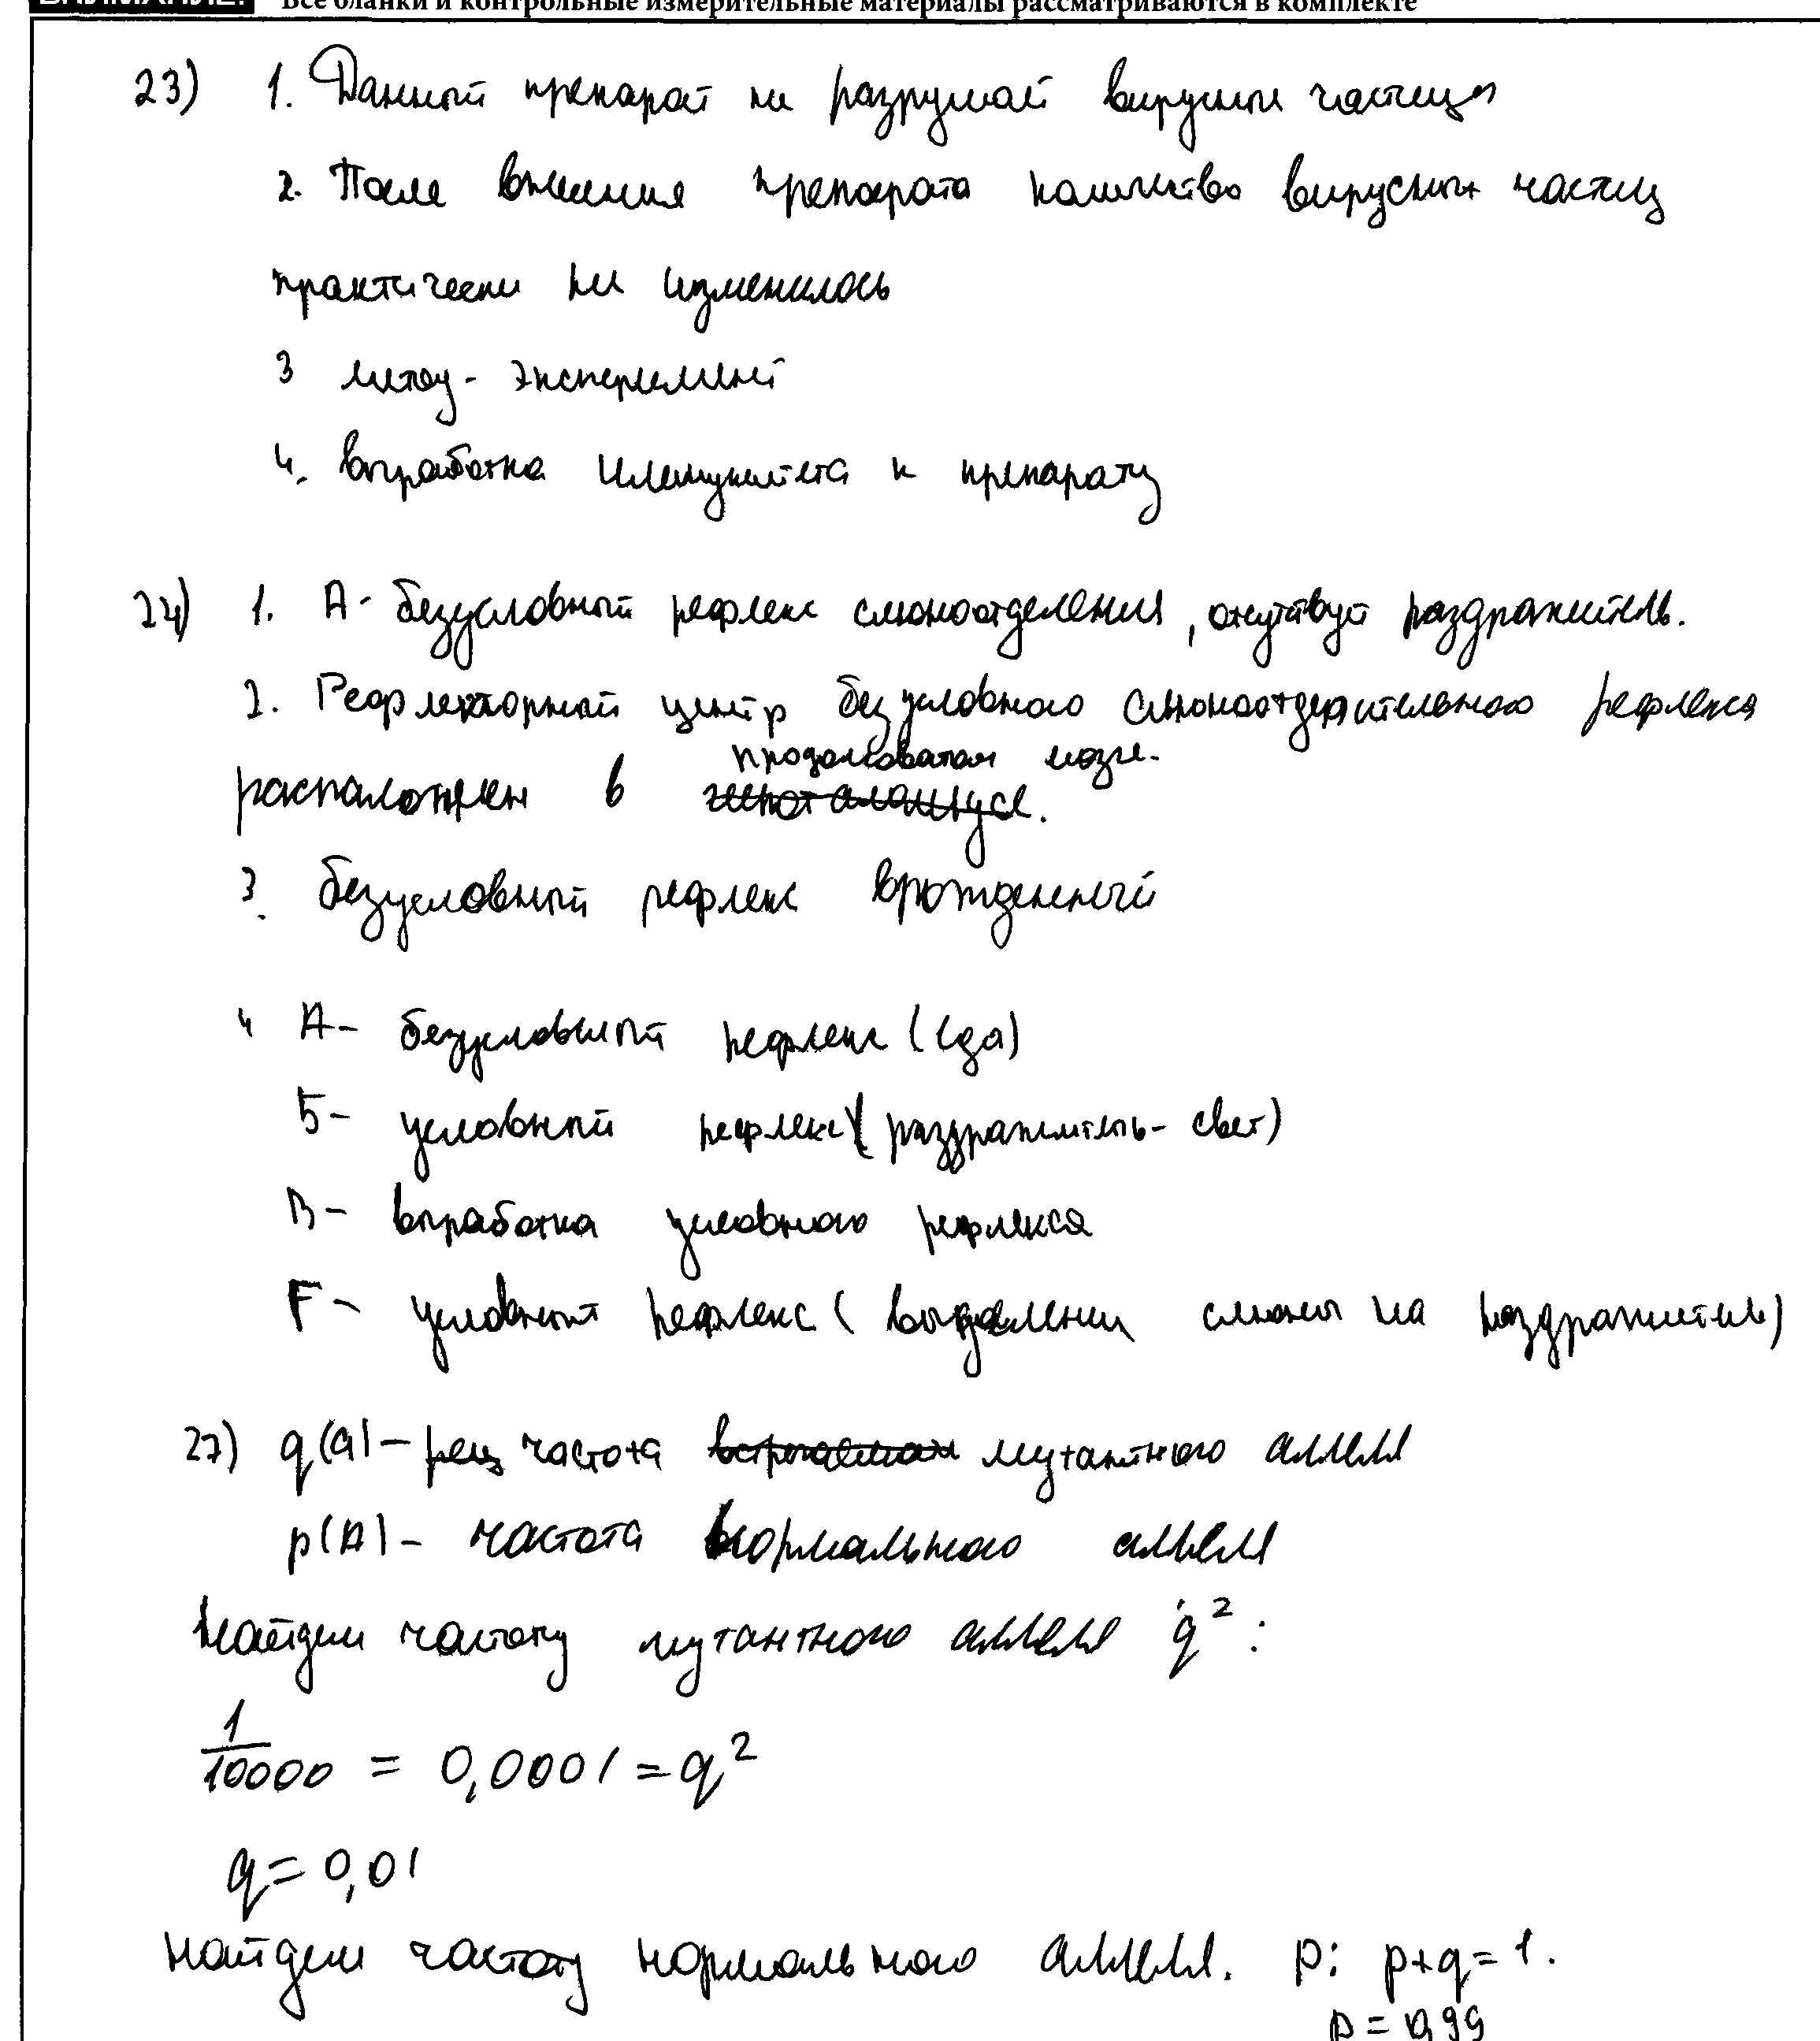 Все бланки и контрольные измерительные материалы рассматриваются в комплекте
23) 1. Данный препарат не разрушает вирусные частицы
2. После внесения препарата количество вирусных частиц
практически не изменилось
3 метод - эксперимент
4. выработка иммунитета к препарату
24) 1. А - безусловный рефлекс слюноотделения, отсутствует раздражитель.
2. Рефлекторный центр безусловного слюноотделительного рефлекса
продолговатом мозге.
расположен в гипоталамусе.
3. безусловный рефлекс врожденный
4 А - безусловный рефлекс (еда)
Б - условный рефлекс (раздражитель - свет)
В - выработка условного рефлекса
F - условный рефлекс (выделении слюны на раздражитель)
27) q(a) - рец частота мутантного аллеля
p(A) - частота нормального аллеля
Найдем частоту мутантного аллеля q²:
1/10000 = 0,0001 = q²
q = 0,01
найдем частоту нормального аллеля. p: p+q=1.
p = 0,99